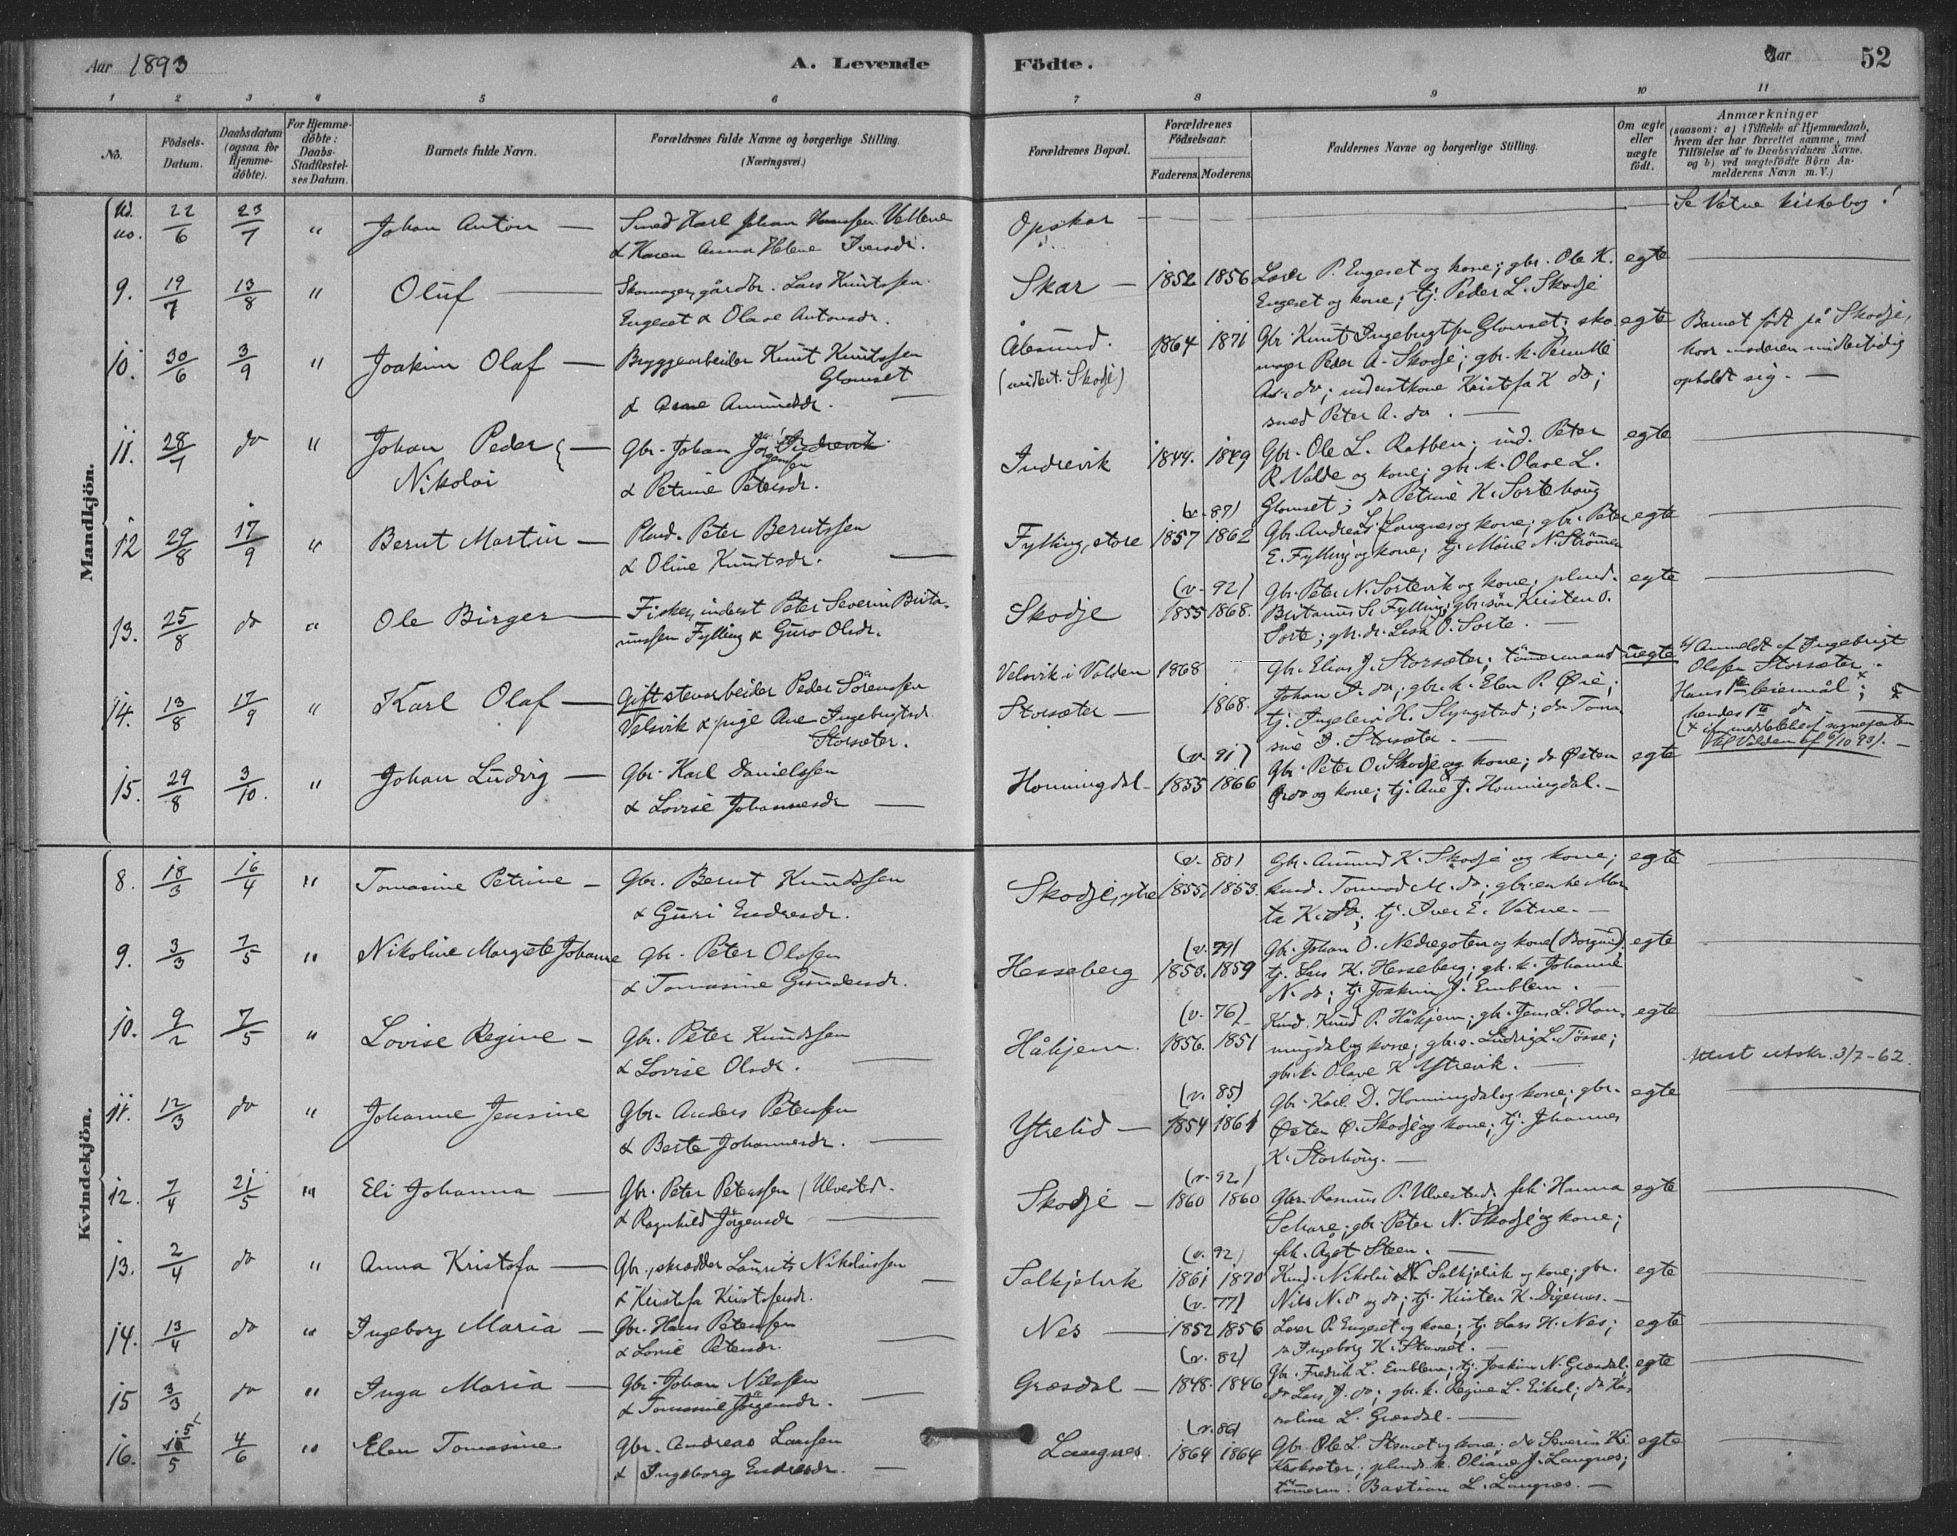 Aar 1893
A. Levende
Födte.
Aar
52
1 2 3 4 5 6 7 8 9 10 11
No.
Födsels-
Datum.
Daabsdatum
(ogsaa for
Hjemme-
döbte).
For Hjemme-
döbte:
Daabs-
Stadfæstel-
ses Datum.
Barnets fulde Navn.
Forældrenes fulde Navne og borgerlige Stilling.
(Næringsvei.)
Forældrenes Bopæl.
Forældrenes
Födselsaar.
Faderens. Moderens.
Faddernes Navne og borgerlige Stilling.
Om ægte
eller
uægte
födt.
Anmærkninger
(saasom: a) i Tilfælde af Hjemmedaab,
hvem der har forrettet samme, med
Tilföielse af to Daabsvidners Navne.
og b) ved uægtefödte Börn An-
melderens Navn m. V.)
Mandkjön.
22/6 23/7 " Johan Anton — Smed Karl Johan Hansen Vatne
& Karen Anna Helene Iversdr.
Opskar
Se Vatne kirkebog!
9. 19/7 13/8 " Oluf — Skomager, gårdbr. Lars Knutssen
Engeset & Olave Antonsdr.
Skar — 1852 1856
Laer P. Engeset og kone; gbr. Ole K.
Engeset og kone; tj. Peder L. Skodje
egte
10. 30/6 3/9 " Joakim Olaf — Bryggearbeider Knut Knutssen
Glomset
& Ane Amundsdr.
Ålesund.
(midlert. Skodje)
1864 1871
Gbr. Knut Ingebrigtsen Glomset; sko-
mager Peder A. Skodje; gbr. k. Pernille
A. do; inderstkone Kristofa K. do;
smed Peter A. do. —
egte
Barnet født på Skodje,
hvor moderen midlertidig
opholdt sig. —
11. 28/7 do " Johan Peder
Nikolai
Gbr. Johan Jørgensen Indrevik
& Petrine Petersdr.
Indrevik 1844. 1849
Gbr. Ole L. Ratben; ind. Peter
R. Valde og kone; gbr. k. Olave L.
Glomset; do Petrine K. Sortehoug
egte
12 29/8 17/9 " Bernt Martin — Plads. Peter Berntssen
& Oline Knutsdr. —
Fylling, store
(v. 87)
1857 1862
Gbr. Andreas L. Langnes og kone; gbr. Peter
E. Fylling og kone; tj. Mone N. Strømmen
egte
13. 25/8 do " Ole Birger — Fisker, inderst Peter Severin Brita-
nussen Fylling & Guro Olsdr.
Skodje
(v. 92)
1855 1868.
Gbr. Peter N. Sortevik og kone; plads.
Britanus S. Fylling; gbr. søn Kristen O.
Sorte; gbr. dr. Lisa O. Sorte. —
egte
14. 13/8 17/9 " Karl Olaf — Gift stenarbeider Peder Sørenssen
Velsvik & pige Ane Ingebrigtsd.
Storsæter.
Velsvik i Volden 1868
Storsæter — 1868.
Gbr. Elias J. Storsæter; tømermand
Johan A. do; gbr. k. Elen P. Øie;
tj. Ingeleiv H. Slyngstad; do Tom-
sine D. Storsæter. —
uegte
b) Anmeldt af Ingebrigt
Olssen Storsæter.
Hans 1ste leiermål; &
hendes 1ste do
15. 29/8 3/10. " Johan Ludvig — Gbr. Karl Danielssen
& Lovise Johannesdr —
Honningdal
(v. 91)
1855 1866
Gbr. Peter O. Skodje og kone; do Østen
Ø. do og kone; tj. Ane J. Honningdal. —
egte
Kvindekjön.
8. 18/3 16/4 " Tomasine Petrine — Gbr. Bernt Knudssen
& Guri Endresdr.
Skodje, ytre
(v. 80)
1855 1853.
Gbr. Amund K. Skodje og kone;
kund. Tormod M. do; gbr. enke Mar-
ta K. do; tj. Iver E. Vatne. —
egte
9. 3/3 7/5 " Nikoline Margrete Johanne gbr. Peter Olssen
& Tomasine Gundersdr.
Hesseberg
(v. 79)
1850. 1859
Gbr. Johan O. Nedregoten og kone (Borgund)
tj. Lars K. Hesseberg; gbr. k. Johanne
N. do; tj. Joakim J. Emblem. —
egte
10. 9/2 7/5 " Lovise Regine — Gbr. Peter Knudssen
& Lovise Olsdr. —
Håhjem.
(v. 76)
1856. 1851
Kund. Knud P. Håhjem; gbr. Jens L. Hon-
ningdal og kone; gbr. s. Ludvig L. Tøsse;
gbr. k. Olave K. Ytrevik. —
egte
Attest utskr. 3/7-62.
11. 12/3 do " Johanne Jensine Gbr. Anders Petersen
& Berte Johannesdr. —
Ytrelid —
(v. 85)
1854 1861
Gbr. Karl D. Honningdal og kone; gbr.
Østen Ø. Skodje og kone; tj. Johannes
K. Storhoug. —
egte
12. 7/4 21/5 " Eli Johanna — Gbr. Peter Peterssen Ulvestad.
& Ragnhild Jørgensdr —
Skodje —
(v. 92)
1860 1860
Gbr. Rasmus P. Ulvestad; frk. Hanna
Schare; gbr. Peter N. Skodje og kone;
frk. Ågot Steen. —
egte
13. 2/4 do " Anna Kristofa — Gbr., skrædder Laurits Nikolaissen
& Kristofa Kristofersdr.
Solkjelvik
(v. 92)
1861 1870
Kund. Nikolai N. Solkjelvik og kone; gbr.
Nils N. do og do; tj. Kristen K. Digernes. —
egte
14. 13/4 do " Ingeborg Maria — Gbr. Hans Petersen
& Lovise Petersdr.
Nes —
(v. 77)
1852 1856
Laer P. Engeset og kone; tj. Lars H. Nes;
do Ingeborg K. Stavset. —
egte
15 3/3 do " Inga Maria — Gbr. Johan Nilssen
& Tomasine Jørgensdr. —
Græsdal —
(v. 82)
1848. 1846
Gbr. Fredrik L. Emblem; tj. Joakim N. Græsdal;
do Lars J. do; gbr. k. Regine L. Eikrol; do Ka-
roline L. Græsdal. —
egte
16. 15/5 4/6 " Elen Tomasine Gbr. Andreas Larssen
& Ingeborg Endresdr. —
Langnes.
(v. 86)
1864 1864
Gbr. Ole L. Stemet og kone; do Severin K.
Kirksæter; plads. k. Oliane J. Langnes;
tømerm. Bastian L. Langnes. —
egte